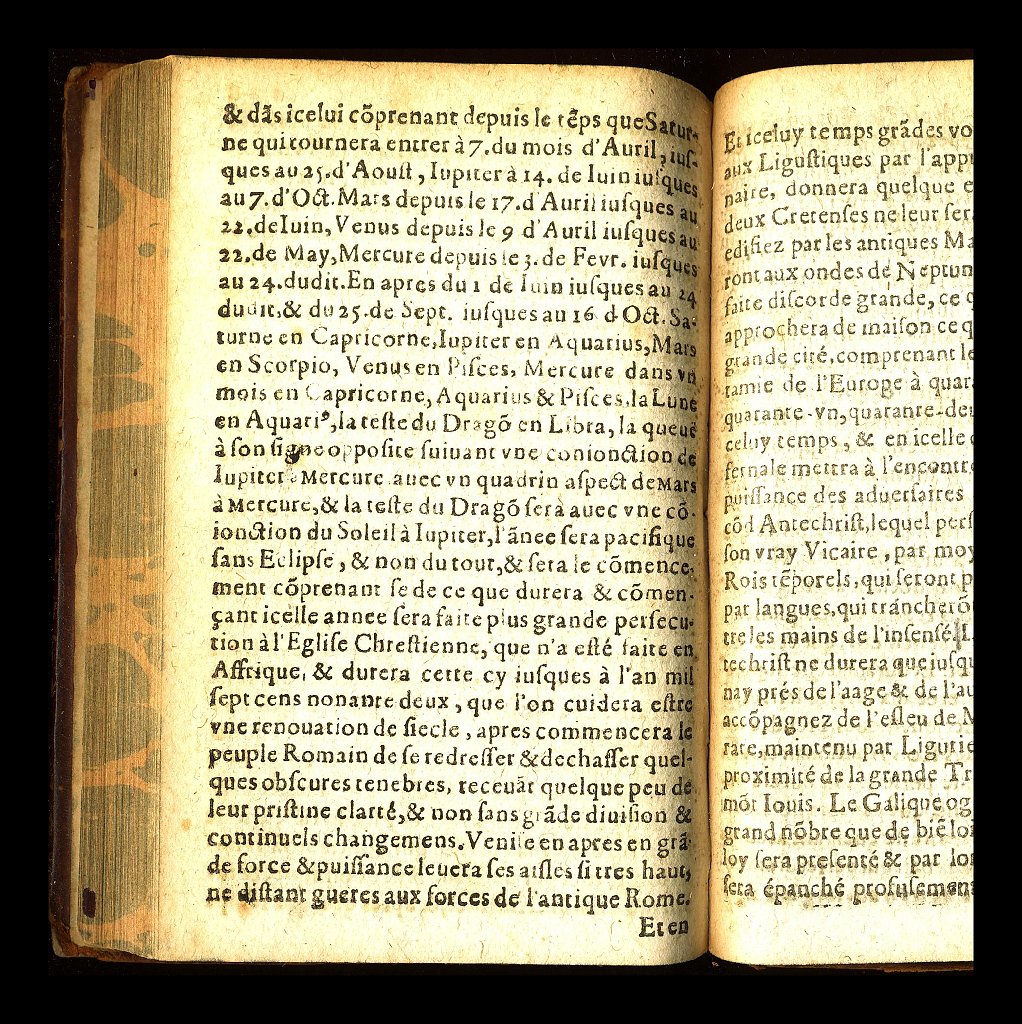 & dãs icelui cõprenant depuis le tẽps que Satur-
ne qui tournera entrer à 7. du mois d'Auril, iuſ-
ques au 25. d'Aouſt, Iupiter à 14. de Iuin iuſques
au 7. d'Oct. Mars depuis le 17. d'Auril iuſques au
22. de Iuin, Venus depuis le 9 d'Auril iuſques au
22. de May, Mercure depuis le 3. de Fevr. iuſques
au 24. dudit. En apres du 1 de Iuin iuſques au 24
dudit. & du 25. de Sept. iuſques au 16 d'Oct. Sa-
turne en Capricorne, Iupiter en Aquarius, Mars
en Scorpio, Venus en Piſces, Mercure dans vn
mois en Capricorne, Aquarius & Piſces, la Lune
en Aquariꝰ, la teſte du Dragõ en Libra, la queuë
à ſon ſigne oppoſite ſuiuant vne conionction de
Iupiter à Mercure auec vn quadrin aſpect de Mars
à Mercure, & la teſte du Dragõ ſera auec vne cõ-
ionction du Soleil à Iupiter, l'ãnee ſera pacifique
ſans Eclipſe, & non du tout, & ſera le cõmence-
ment cõprenant ſe de ce que durera & cõmen-
çant icelle annee ſera faite plus grande perſecu-
tion à l'Egliſe Chreſtienne, que n'a eſté faite en
Affrique, & durera cette cy iuſques à l'an mil
ſept cens nonante deux, que l'on cuidera eſtre
vne renouation de ſiecle, apres commencera le
peuple Romain de ſe redreſſer & dechaſſer quel-
ques obſcures tenebres, receuãt quelque peu de
leur priſtine clarté, & non ſans grãde diuiſion &
continuels changemens. Veniſe en apres en grã-
de force & puiſſance leuera ſes aiſles ſi tres haut,
ne diſtant gueres aux forces de l'antique Rome.
Et en
Et iceluy temps grãdes vo
aux Liguſtiques par l'app
naire, donnera quelque e
deux Cretenſes ne leur ſer
edifiez par les antiques Ma
ront aux ondes de Neptun
faite diſcorde grande, ce q
approchera de maiſon ce q
grande cité, comprenant le
tamie de l'Europe à quar
quarante-vn, quarante-deu
celuy temps, & en icelle
fernale mettra à l'encontre
puiſſance des aduerſaires
cõd Antechriſt, lequel perſ
ſon vray Vicaire, par moy
Rois tẽporels, qui ſeront p
par langues, qui trãcherõ
tre les mains de l'inſenſé. L
techriſt ne durera que iuſqu
nay prés de l'aage & de l'au
accõpagnez de l'eſleu de M
rare, maintenu par Ligurie
proximité de la grande Tr
mõt Iouis. Le Galique og
grand nõbre que de biẽ loi
loy ſera preſenté & par lo
ſera épanché profuſement